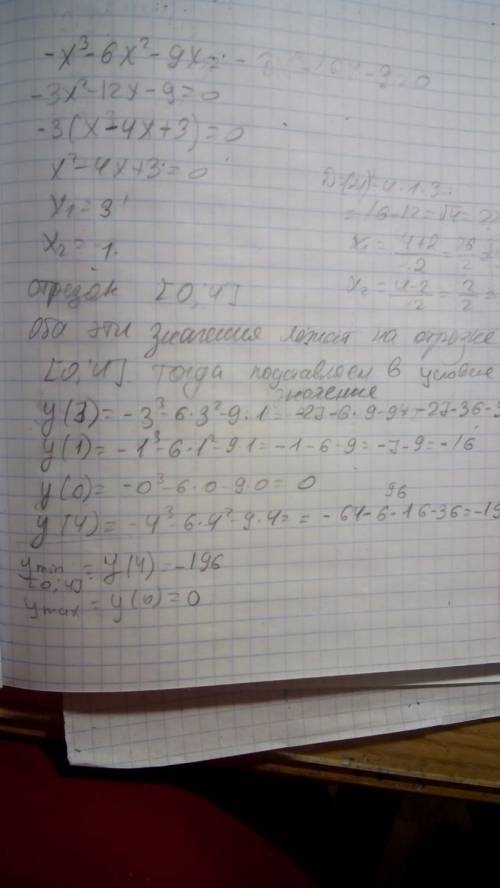 -x³-6x²-9x=
-3x²-12x-9=0
-3(x²-4x+3)=0
x²-4x+3=0
x₁=3
x₂=1.
=16-12=√4=2
x₁=4+2/2=6/2=
x₂=4-2/2=2/2=
отрезок [0;4]
Оба эти значения лежат на отрезке
[0;4]. Тогда подставляем в условие
значения
y(3)=-3³-6·3²-9·1=-27-6·9-9=-27-36-
y(1)=-1³-6·1²-9·1=-1-6-9=-7-9=-16
y(0)=-0³-6·0-9·0=0
96
y(4)=-4³-6·4²-9·4==-64-6·16-36=-19
y min [0;4] = y(4)=-196
y max = y(0)=0